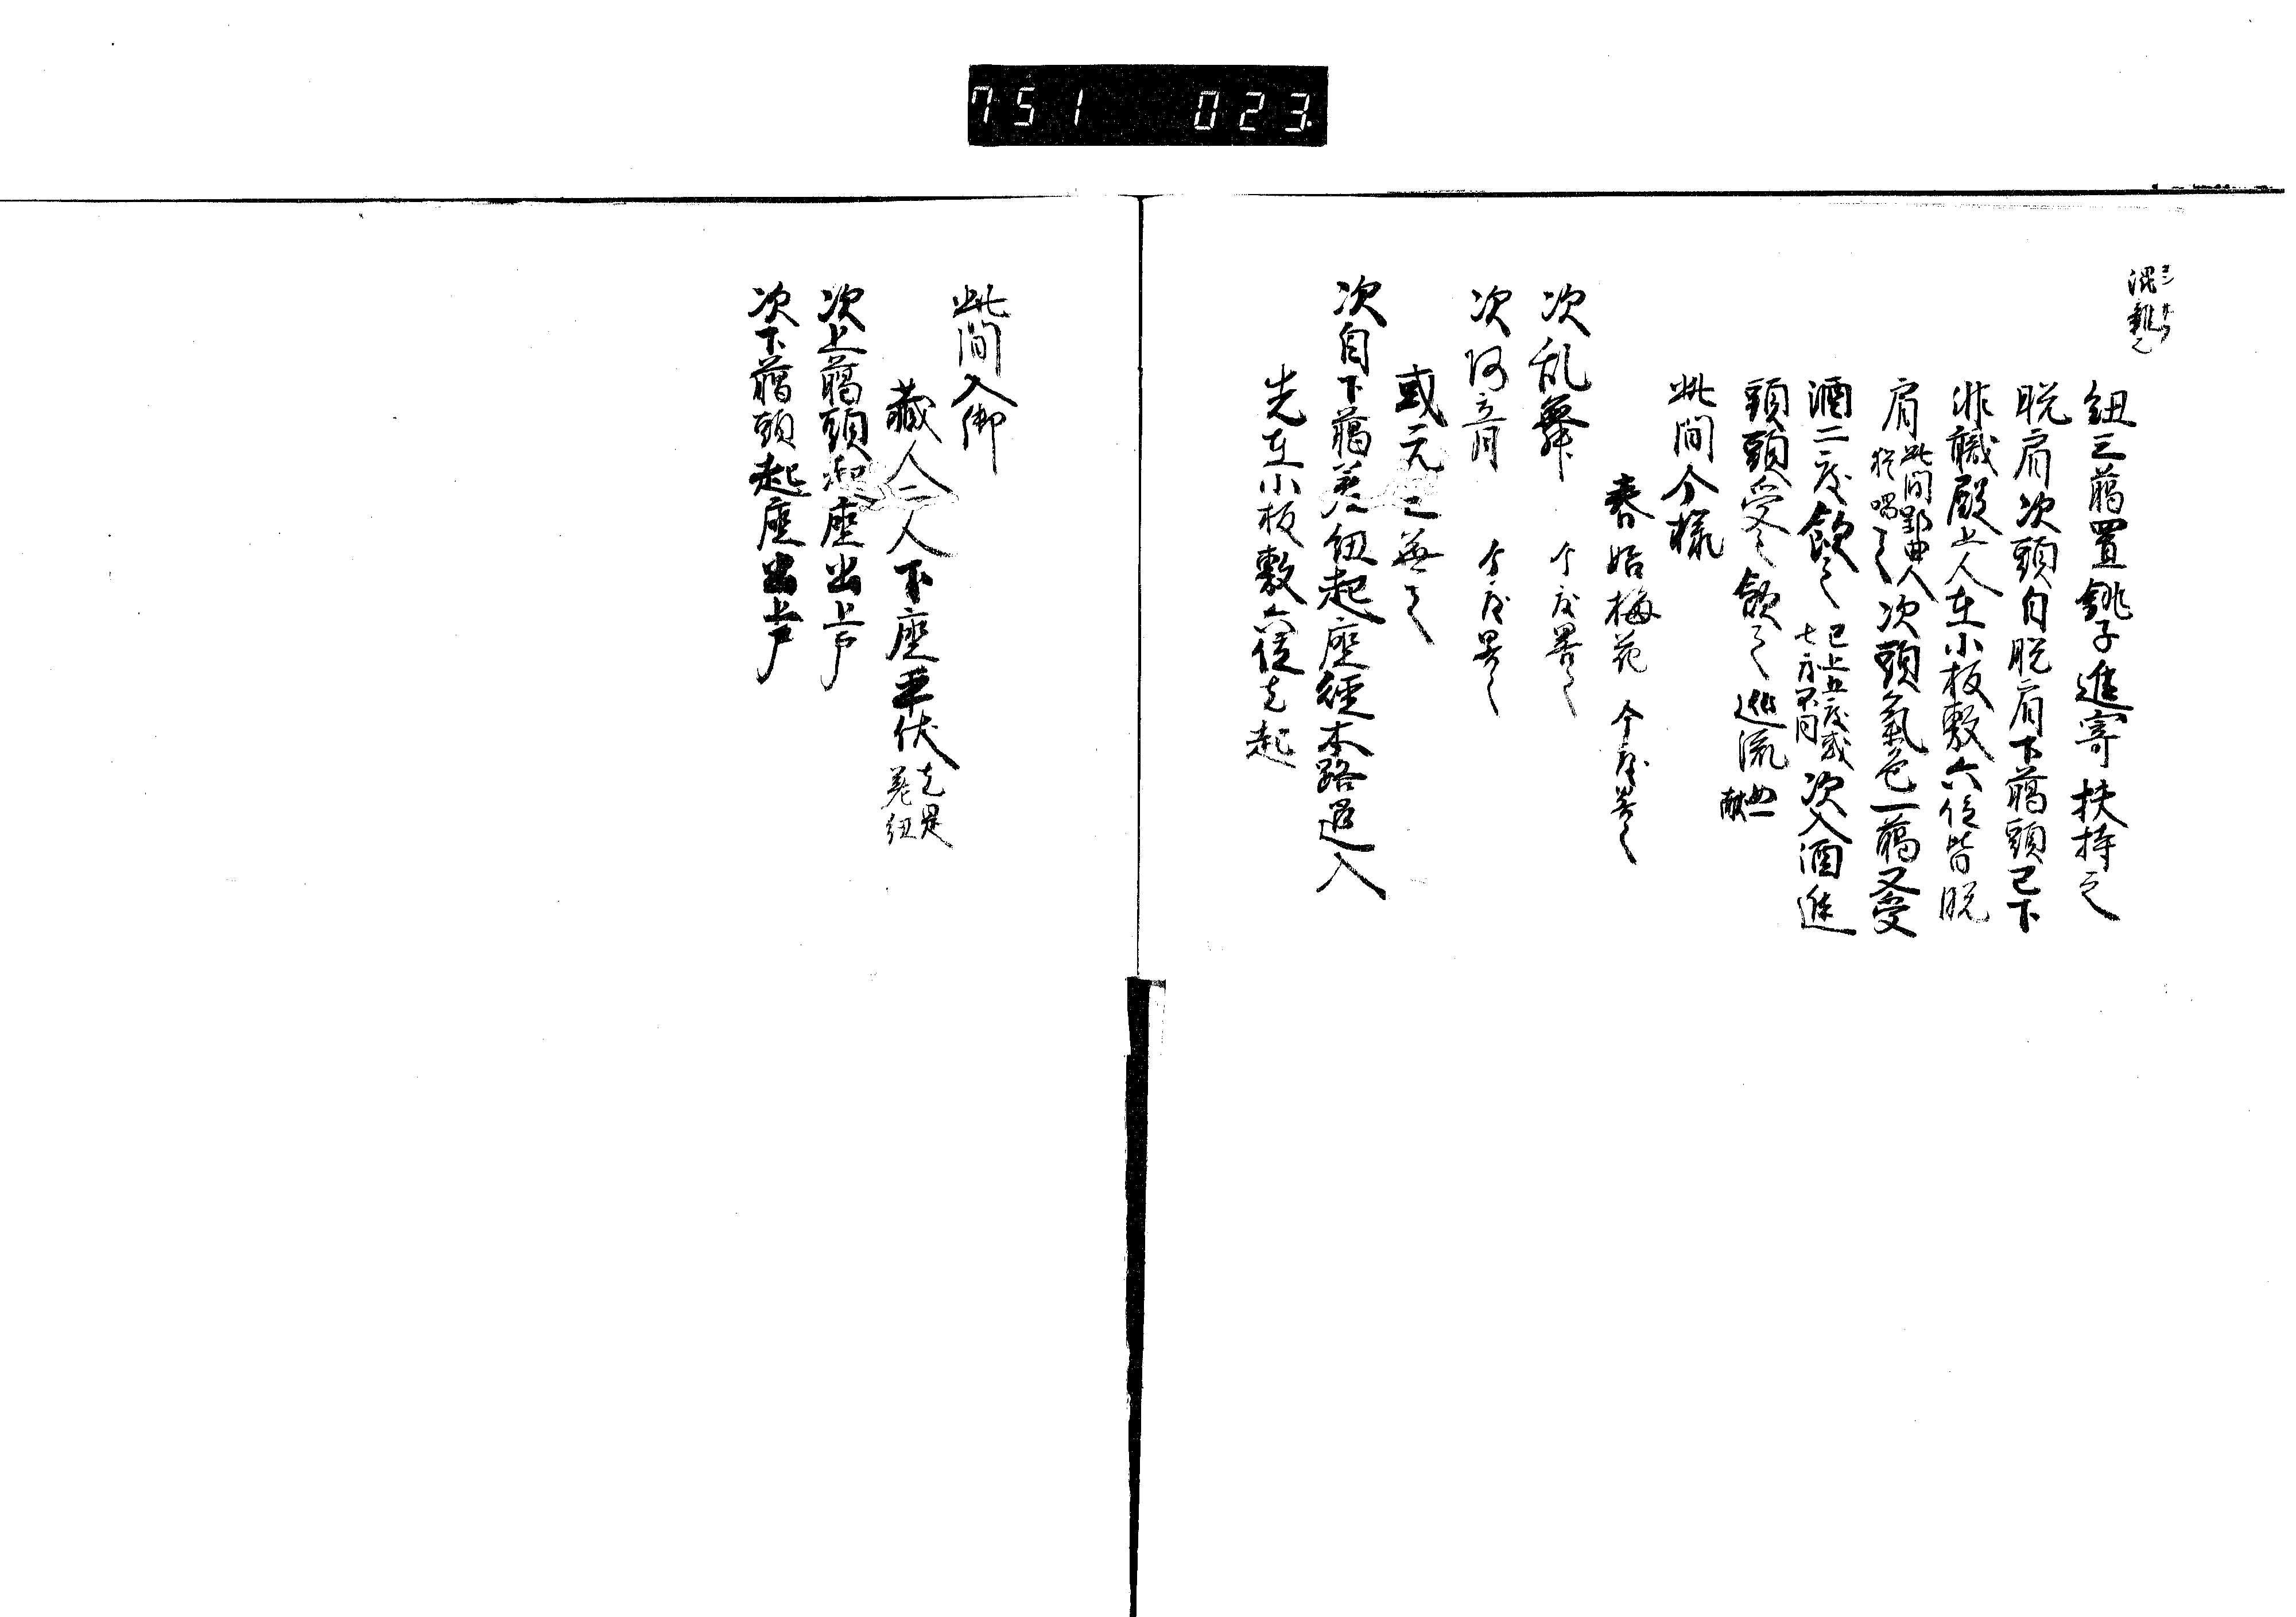 751 023
混雜也
紐三﨟置銚子進寄扶持之
脱肩次頭自脱肩下﨟頭已下
非職殿上人在小板敷六位皆脱
肩 此間郢曲人 猶唱之 次頭氣色一﨟又受
酒二度飲之 已上五度或 七度不同 次入酒進
頭頭受之飲之巡流 如一 献
此間今樣
春始梅花 今度畧之
次乱舞 今度畧之
次 今度畧之
或元之無之
次自下﨟差紐起座經本路退入
先在小板敷六位先起
此間入御
藏人二人下座平伏 先是 差紐
次上﨟頭起座出上戸
次下﨟頭起座出上戸